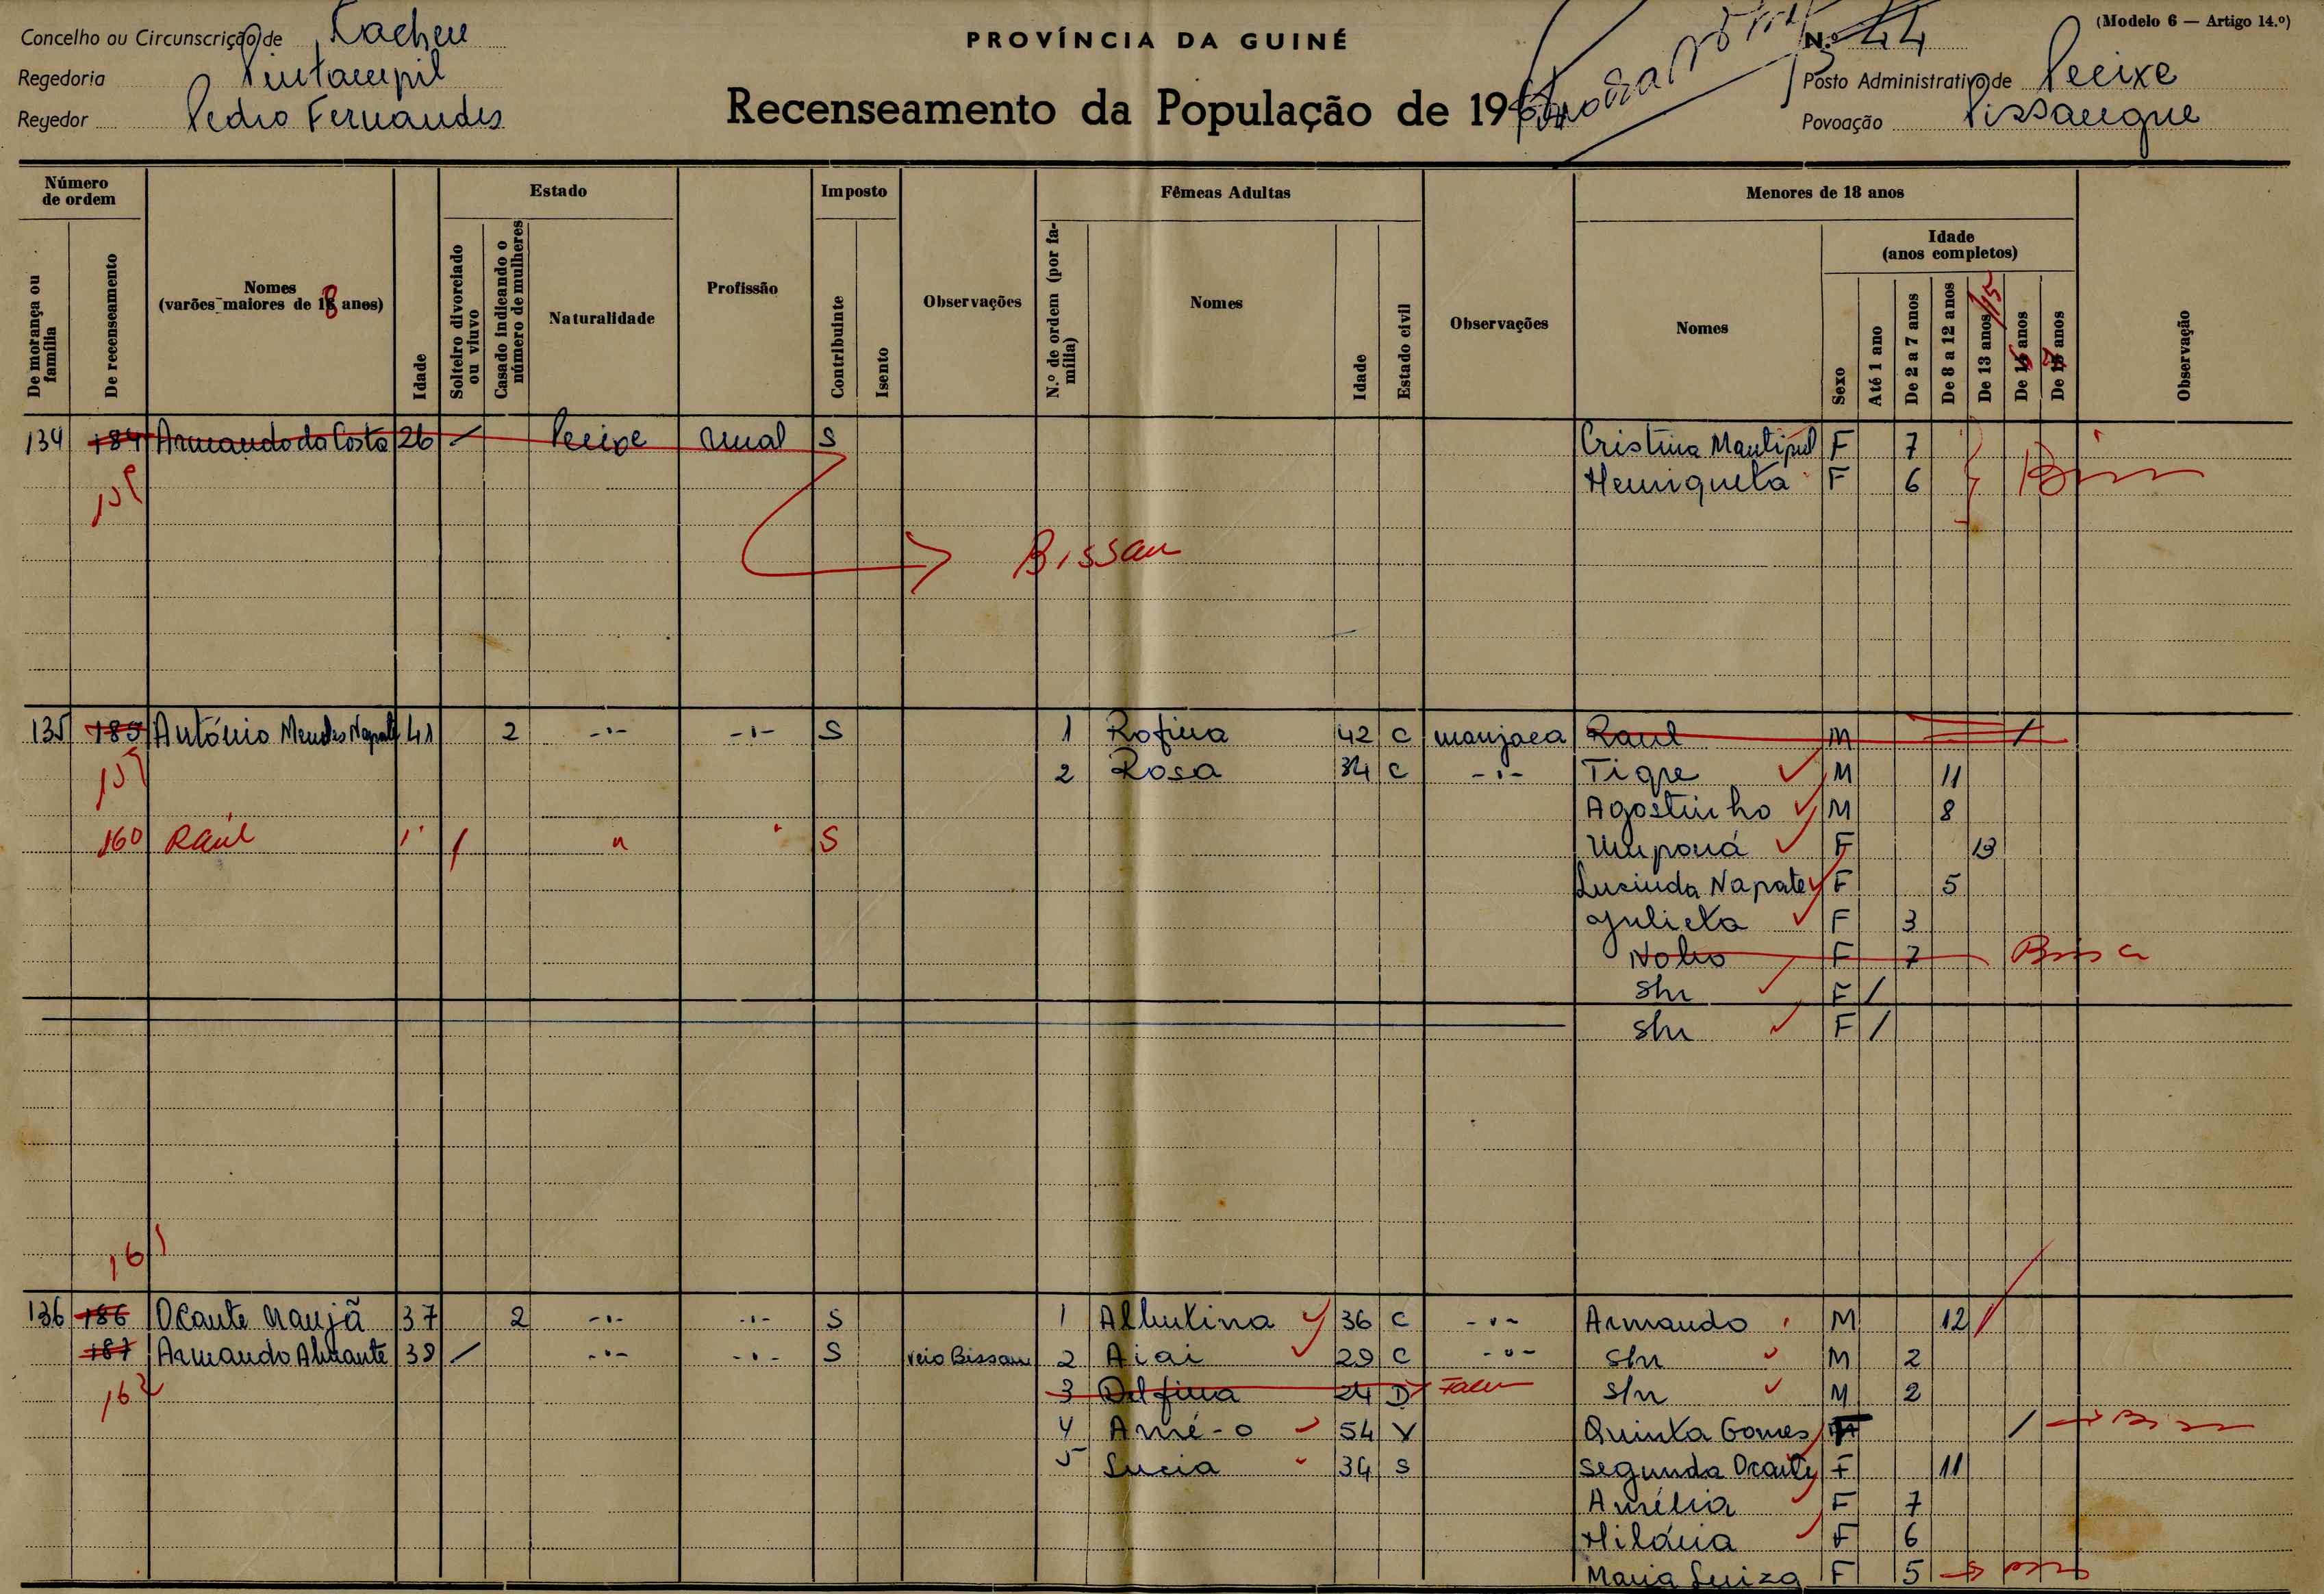 Concelho ou Circunscrição de Cacheu
PROVÍNCIA DA GUINÉ
N.º 44
(Modelo 6 — Artigo 14.º)
Regedoria
Posto Administrativo de Pecixe
Regedor Pedro Fernandes
Recenseamento da População de 196
Povoação
Número de ordem
De morança ou família
De recenseamento
Nomes (varões maiores de 18 anos)
Idade
Estado
Solteiro divorciado ou viuvo
Casado indicando o número de mulheres
Naturalidade
Profissão
Imposto
Contribuinte
Isento
Observações
Fêmeas Adultas
N.º de ordem (por família)
Nomes
Idade
Estado civil
Observações
Menores de 18 anos
Nomes
Idade (anos completos)
Sexo
Até 1 ano
De 2 a 7 anos
De 8 a 12 anos
De 13 anos 15
De 16 anos
De anos
Observação
134 184 Armando da Costa 26 / Pecixe S Cristina F 7
Henriqueta F 6
Bissau
135 185 António Mendes 41 2 -"- -"- S 1 Rofina 42 C manjaca Raul M /
159 2 Rosa 34 C -"- Tigre M 11
Agostinho M 8
160 Raúl / " " S F 13
Lucinda F 5
Julieta F 3
F 7
Shu F /
Shu F /
161
136 186 Ocante 37 2 -"- -"- S 1 Albutina 36 C -"- Armando M 12
187 Armando 38 / -"- -"- S Veio Bissau 2 Aiai 29 C -"- Shu M 2
162 3 Delfina 24 D Shu M 2
4 Amé-o 54 V Quinta Gomes F /
5 Lucia 34 S Segunda F 11
Amélia F 7
Hilária F 6
Maria Luiza F 5